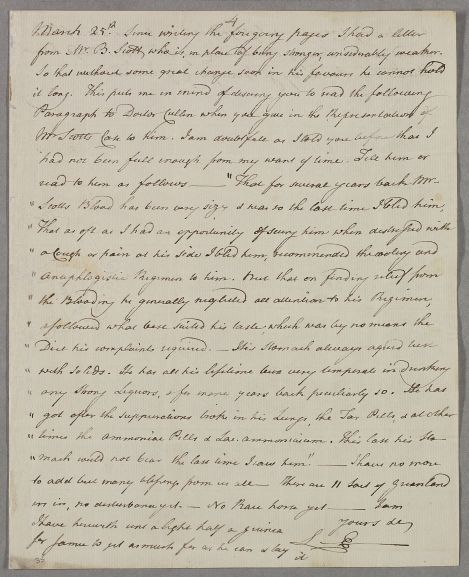 4
March 25th. Since writing the foregoing pages I had a letter
from Mr. B. Scott, who is, in place of being stronger, considerably weaker.
So that without some great change soon in his favours he cannot hold
it long. This puts me in mind of desiring you to read the following
Paragraph to Doctor Cullen when you give in the Representation of
Mr Scotts Case to him. I am doubtfull as I told you before that I
had not been full enough from my want of time. Tell him or
read to him as follows — "That for several years back Mr.
" Scotts Blood has been very sizy & was so the last time I bled him,
" That as oft as I had an opportunity of seeing him when distressed with
" a Cough or pain at his side I bled him, recommended the and
" Antiphlogistic Regimen to him. But that on finding relief from
" the Bleeding he generally neglected all attention to his Regimen,
" & followed what best suited his taste which was by no means the
" Diet his complaints required. — His Stomach always agreed best
" with Solids. He has all his lifetime been very temperate in drinking
" any Strong Liquors, & for many years back peculiarly so. He has
" got after the Suppurations took in his Lungs, the Tar Pills, & at other
" times the Ammoniac Pills & Lac. ammoniacum. This last his Sto-
" mach would not bear the last time I saw him." — I have no more
to add but many blessings from us all — There are 11 Sail of Greenland
in, no disturbance yet — No Race horse yet — I am
I have herewith sent a light half a guinea yours &c
for Jamie to get as much for as he can & lay
it
35